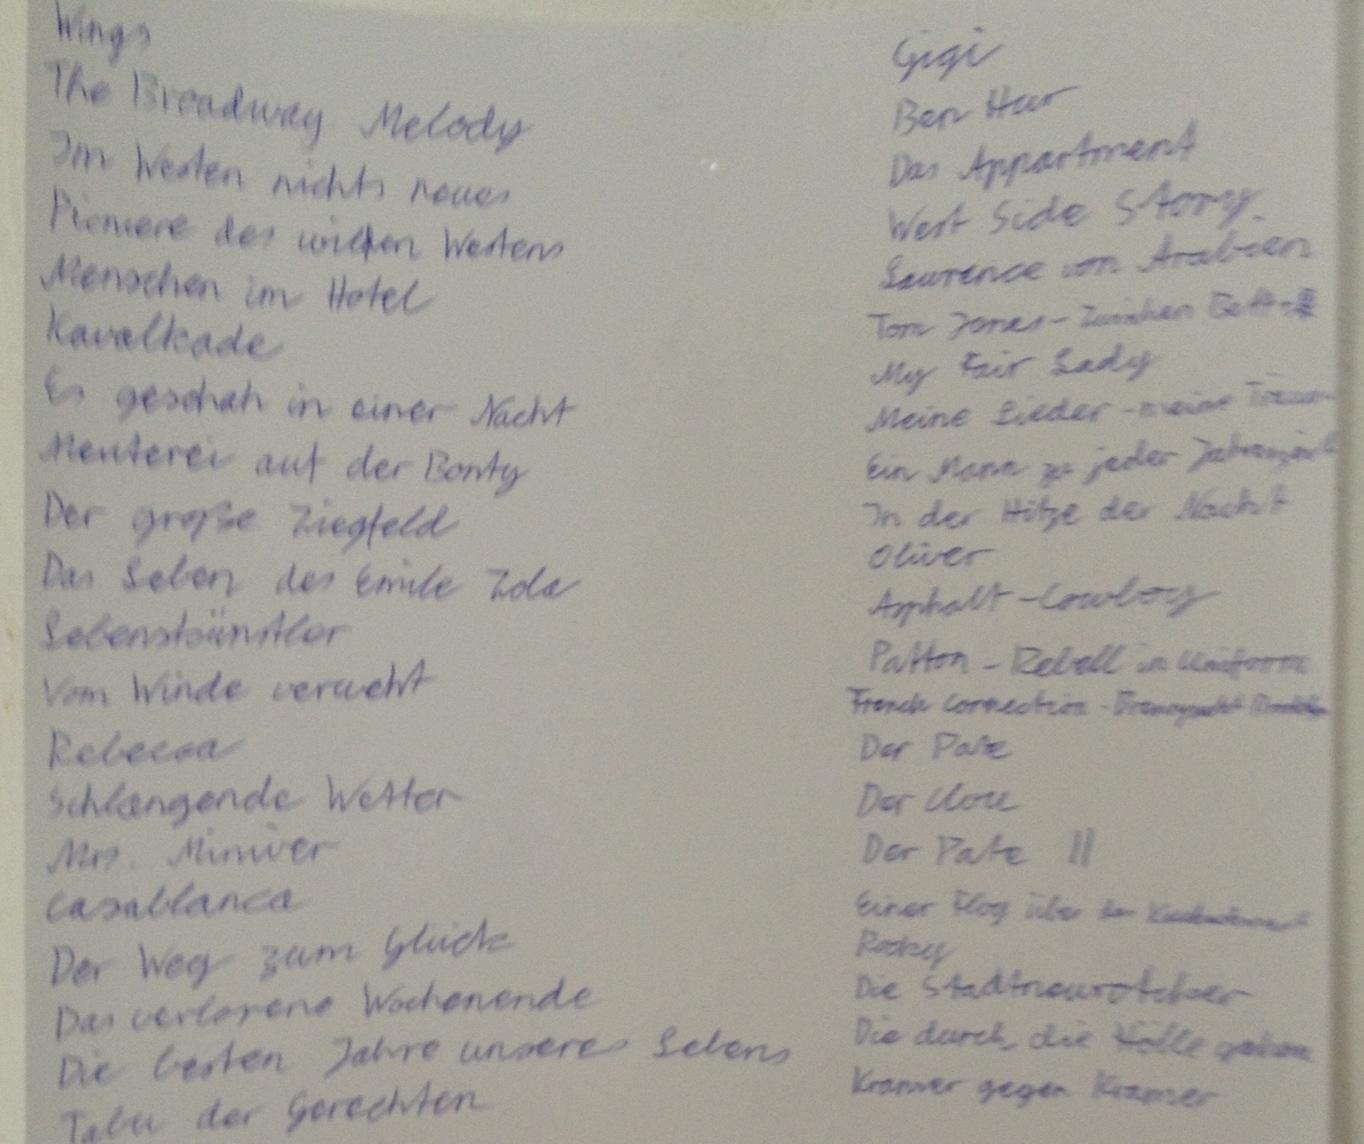 Wings
The Broadway Melody
Im Westen nichts neues
Pioniere des wilden Westens
Menschen im Hotel
Kavalkade
Es geschah in einer Nacht
Meuterei auf der Bonty
Der große Ziegfeld
Das Leben des Emile Zola
Lebenskünstler
Vom Winde verweht
Rebecca
Schlagende Wetter
Mrs. Miniver
Casablanca
Der Weg zum Glück
Das verlorene Wochenende
Die besten Jahre unseres Lebens
Tabu der Gerechten
Gigi
Ben Hur
Das Appartment
West Side Story
Lawrence von Arabien
Tom Jones - Zwischen Bett-
My Fair Lady
Meine Lieder - meine Träum
Ein Mann zu jeder Jahreszeit
In der Hitze der Nacht
Oliver
Asphalt-Cowboy
Patton - Rebell in Uniform
French Connection - Brennpunkt Brooklyn
Der Pate
Der Clou
Der Pate II
Einer flog über das Kuckucksnest
Rocky
Die Stadtneurotiker
Die durch die Hölle gehen
Kramer gegen Kramer